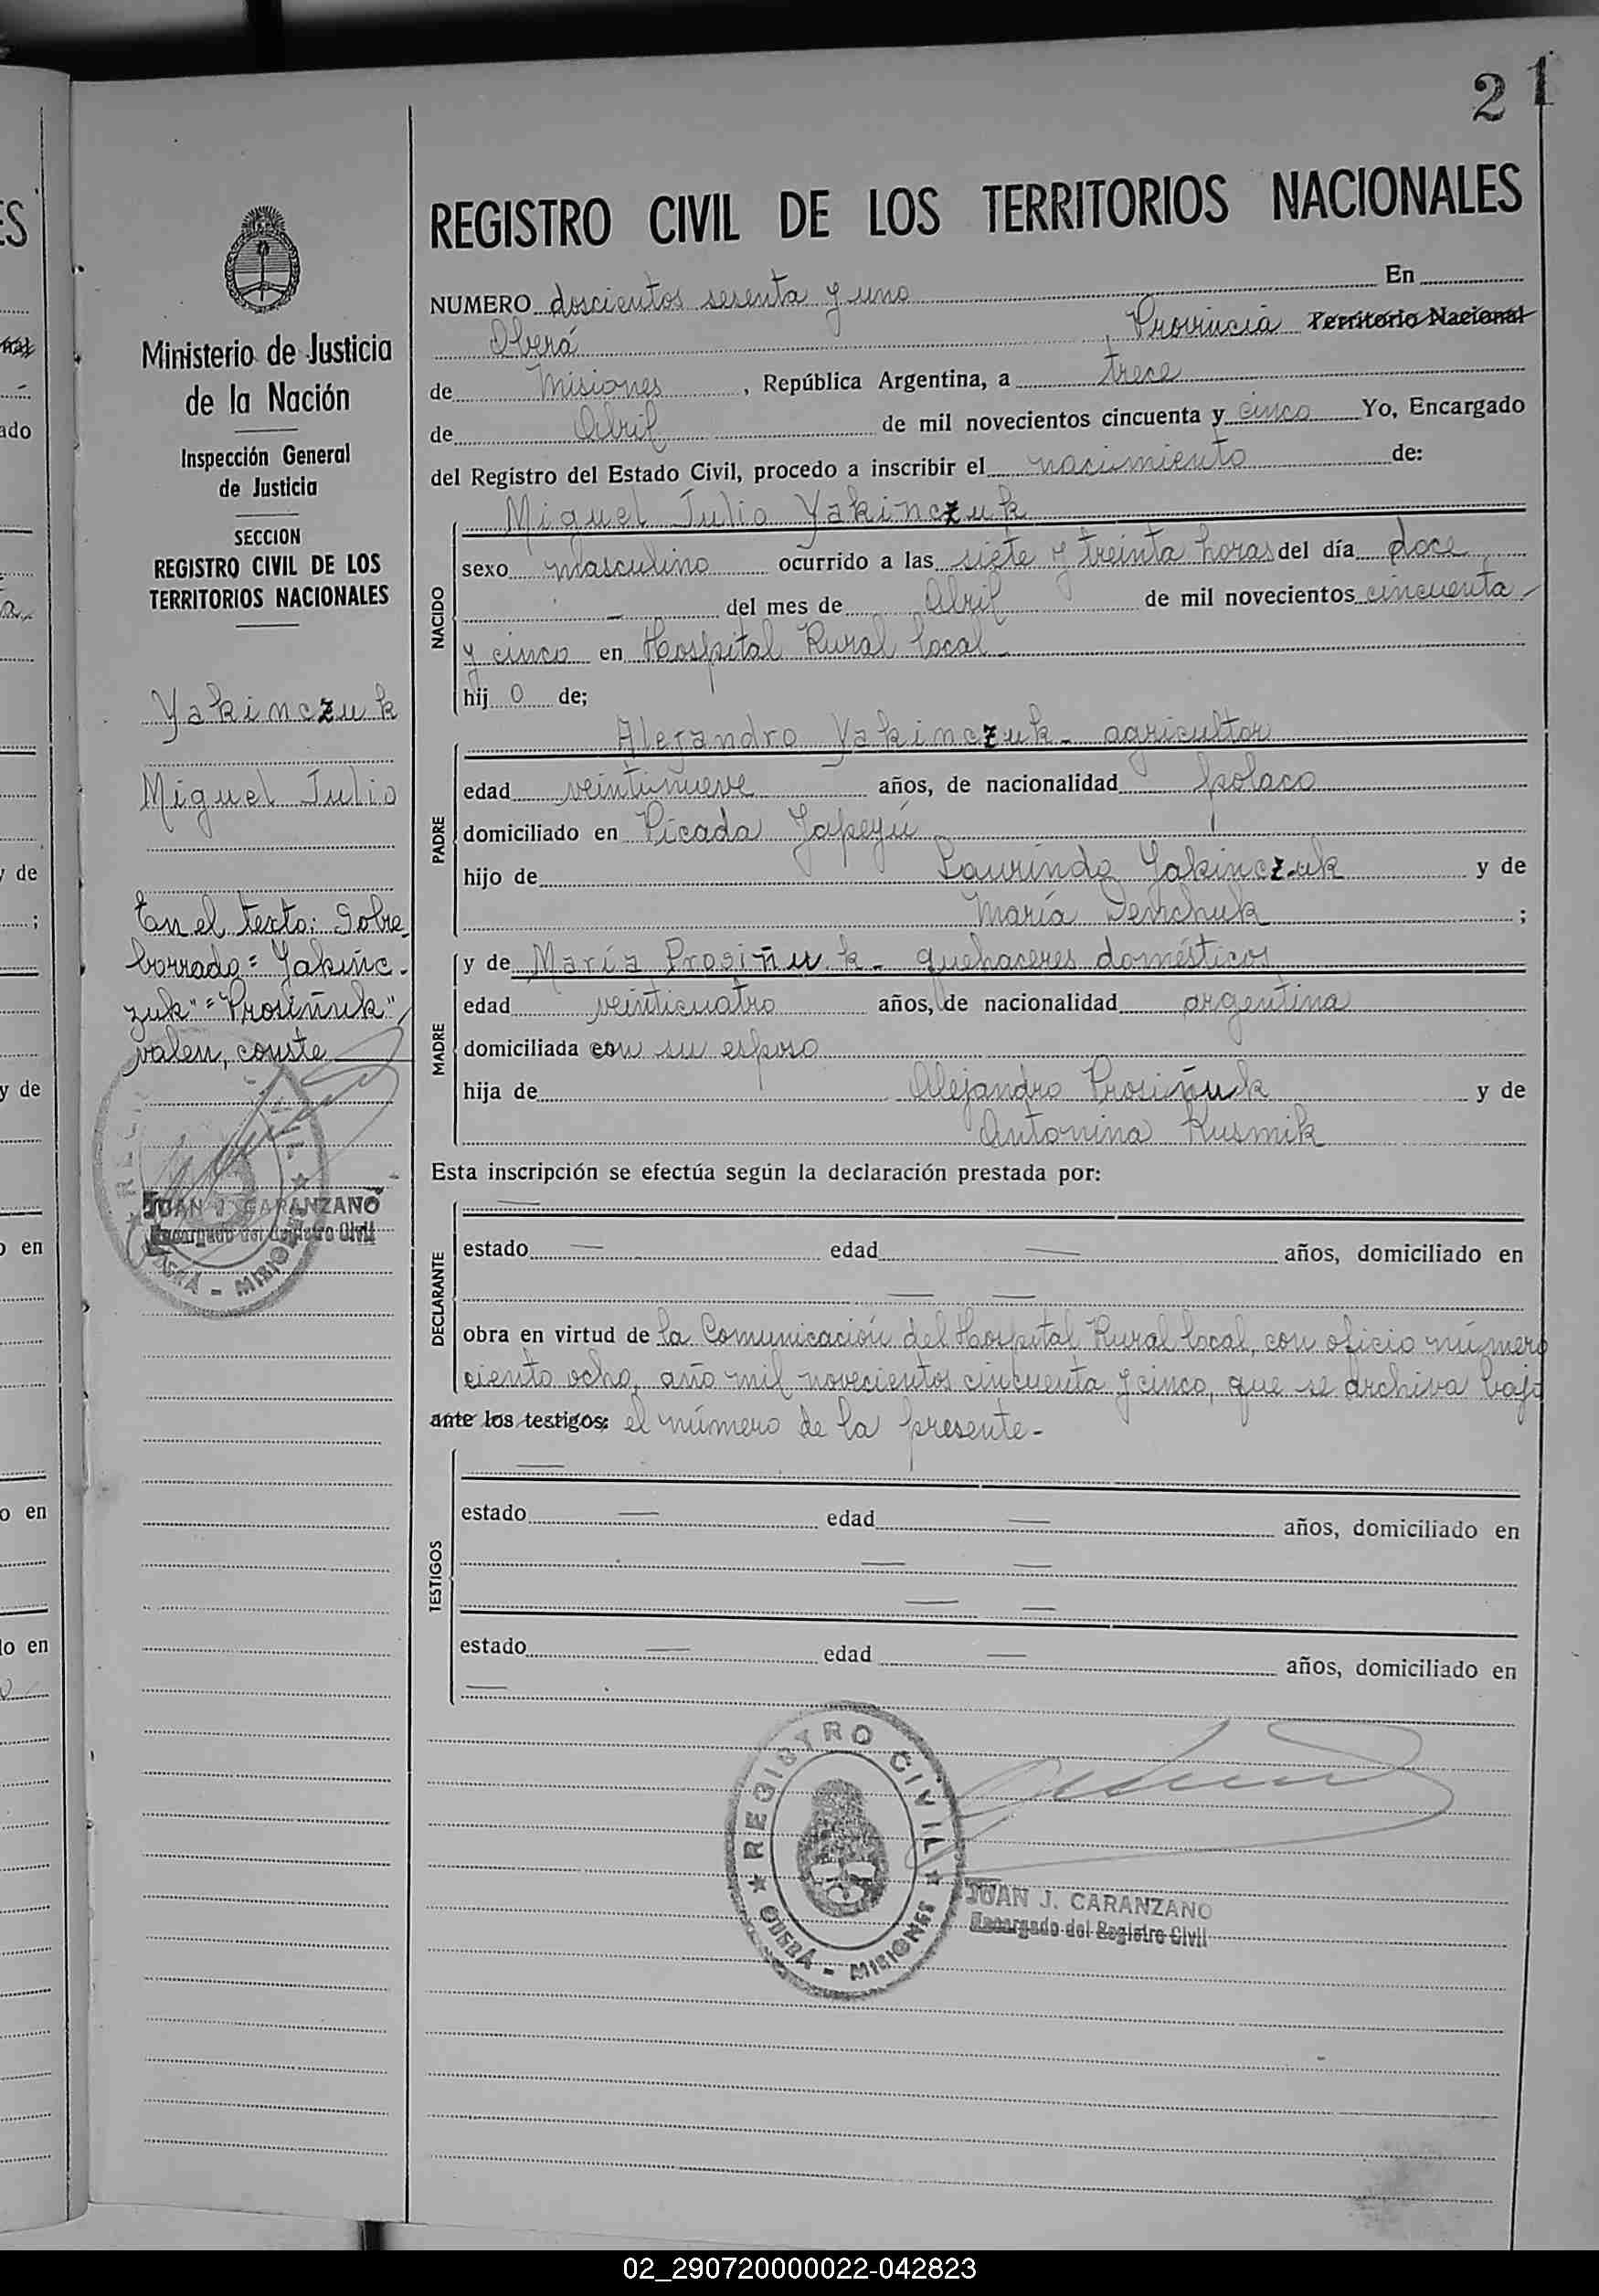 21
REGISTRO CIVIL DE LOS TERRITORIOS NACIONALES
NUMERO doscientos sesenta y uno En
Oberá, Provincia Territorio Nacional
de Misiones, República Argentina, a trece
de Abril de mil novecientos cincuenta y cinco Yo, Encargado
del Registro del Estado Civil, procedo a inscribir el nacimiento de:
NACIDO
Miguel Julio Yakinczuk
sexo masculino ocurrido a las siete y treinta horas del día doce
— del mes de Abril de mil novecientos cincuenta
y cinco en Hospital Rural local-
hij o de;
PADRE
Alejandro Yakinczuk- agricultor
edad veintinueve años, de nacionalidad polaco
domiciliado en Picada Yapeyú
hijo de Laurindo Yakinczuk y de
María Demchuk;
MADRE
y de María Prosiñuk- quehaceres domésticos
edad veinticuatro años, de nacionalidad argentina
domiciliada con su esposo
hija de Alejandro Prosiñuk y de
Antonina Kusmik
Esta inscripción se efectúa según la declaración prestada por:
DECLARANTE
—
estado — edad — años, domiciliado en
— —
obra en virtud de la Comunicación del Hospital Rural local, con oficio número
ciento ocho, año mil novecientos cincuenta y cinco, que se archiva bajo
ante los testigos: el número de la presente-
TESTIGOS
—
estado — edad — años, domiciliado en
— —
— —
estado — edad — años, domiciliado en
—
REGISTRO CIVIL
OBERÁ - MISIONES
JUAN J. CARANZANO
Encargado del Registro Civil
Ministerio de Justicia
de la Nación
Inspección General
de Justicia
SECCION
REGISTRO CIVIL DE LOS
TERRITORIOS NACIONALES
Yakinczuk
Miguel Julio
En el texto: Sobre
borrado= Yakinc-
zuk"="Prosiñuk",
valen, conste
JUAN J. CARANZANO
Encargado del Registro Civil
OBERÁ - MISIONES
02_290720000022-042823